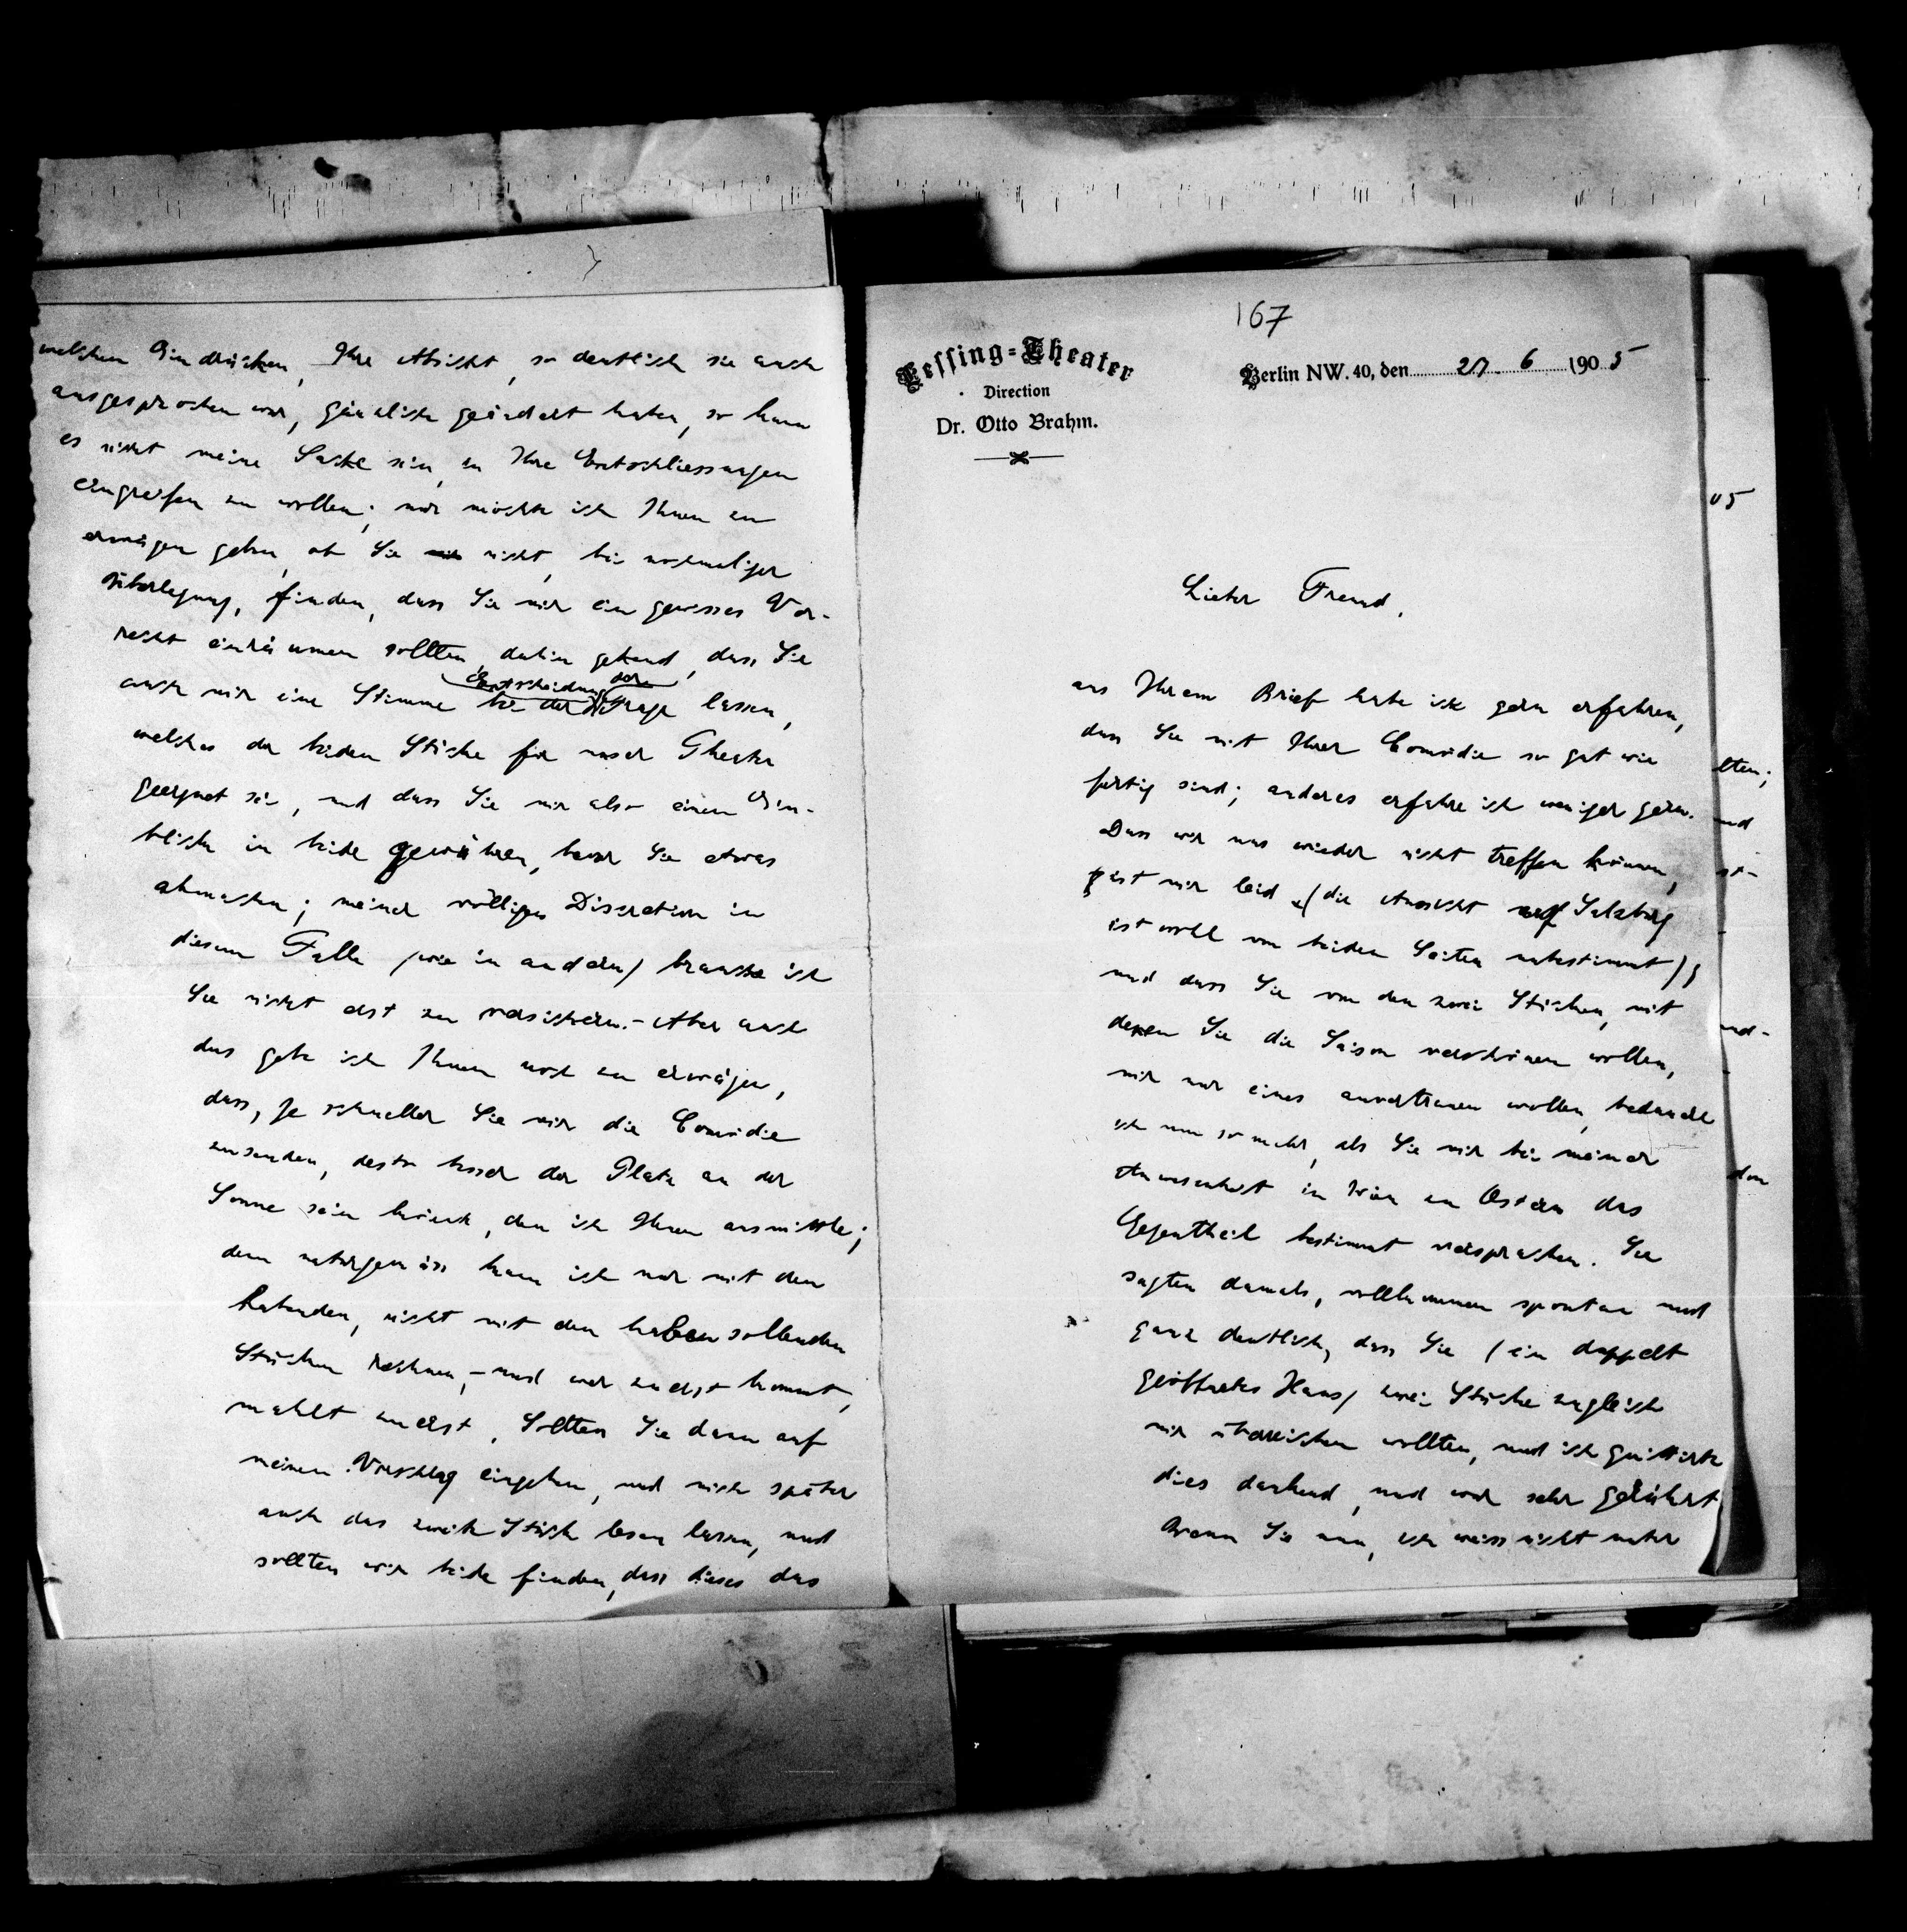 167
Lessing=Theater
Direction
Dr. Otto Brahm.
Berlin NW. 40, den 27. 6 1905
Lieber Freund,
aus Ihrem Brief habe ich gern erfahren,
dass Sie mit Ihrer Comödie so gut wie
fertig sind; anderes erfahre ich weniger gern.
Dass wir uns wieder nicht treffen können,
ist mir leid (die Aussicht auf Salzburg
ist wohl von beiden Seiten unbestimmt);
und dass Sie von den zwei Stücken, mit
denen Sie die Saison verschönen wollen,
mir nur eines anvertrauen wollen, bedaure
ich um so mehr, als Sie mir bei meiner
Anwesenheit in Wien zu Ostern das
Gegentheil bestimmt versprachen. Sie
sagten damals, vollkommen spontan und
ganz deutlich, dass Sie (ein doppelt
geöffnetes Haus) zwei Stücke zugleich
mir überreichen wollten, und ich quittirte
dies dankend, und war sehr gerührt.
Wenn Sie nun, ich weiss nicht unter
welchen Eindrücken, Ihre Absicht, so deutlich sie auch
ausgesprochen war, gänzlich geändert haben, so kann
es nicht meine Sache sein, in Ihre Entschliessungen
eingreifen zu wollen; nur möchte ich Ihnen zu
erwägen geben, ob Sie nicht, bei nochmaliger
Überlegung, finden, dass Sie mir ein gewisses Vor-
recht einräumen sollten, dahin gehend, dass Sie
auch mir eine Stimme bei der Entscheidung der Frage lassen,
welches der beiden Stücke für unser Theater
geeignet sei, und dass Sie mir also einen Ein-
blick in beide gewähren, bevor Sie etwas
abmachen; meiner völligen Discretion in
diesem Falle (wie in andern) brauche ich
Sie nicht erst zu versichern. – Aber auch
das gebe ich Ihnen noch zu erwägen,
dass, je schneller Sie mir die Comödie
zusenden, desto besser der Platz an der
Sonne sein könnte, den ich Ihnen ausmittle;
denn naturgemäss kann ich nur mit den
habenden, nicht mit den haben sollenden
Stücken rechnen, – und wer zuerst kommt,
mahlt zuerst. Sollten Sie dann auf
meinen Vorschlag eingehen, und mich später
auch das zweite Stück lesen lassen, und
sollten wir beide finden, dass dieses das
05
lten;
und
st-
nd-
den